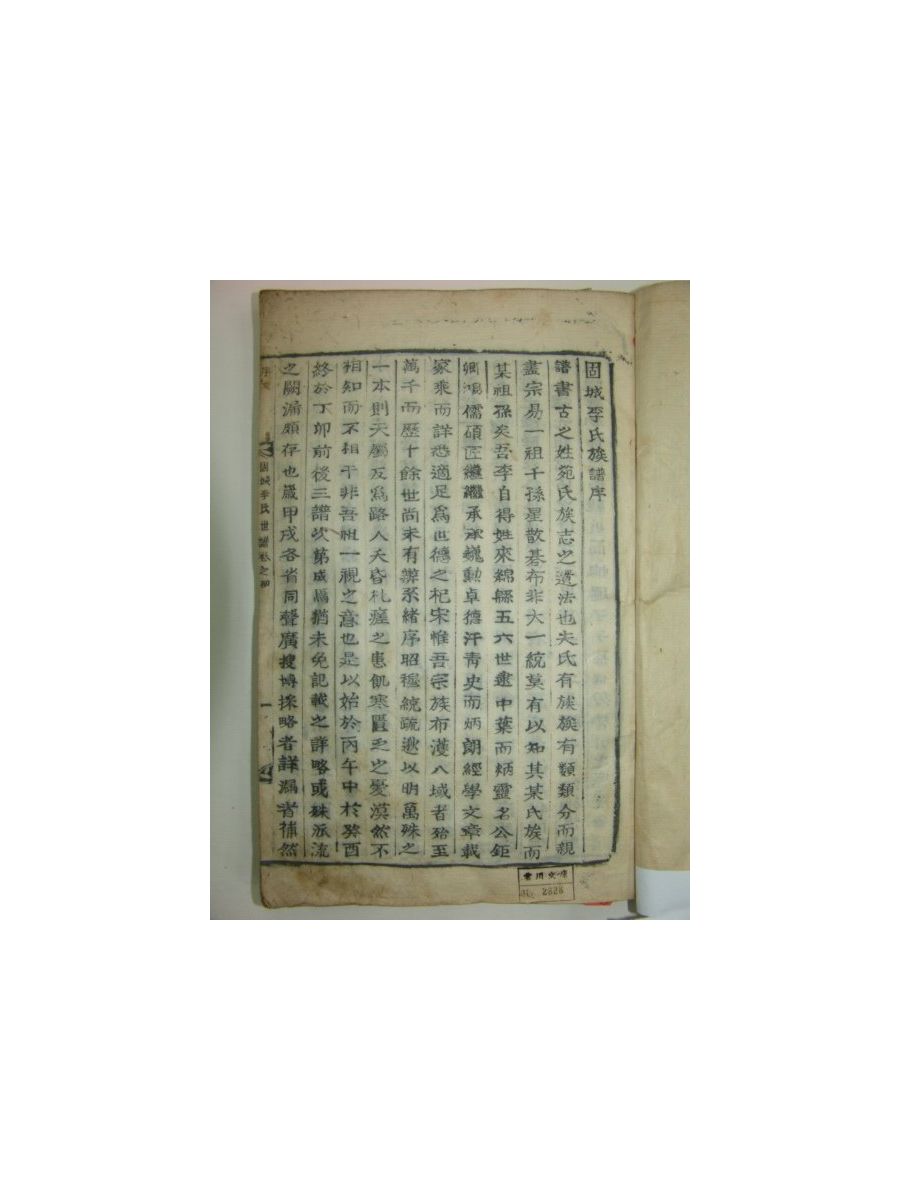 固城李氏族譜序
譜書古之姓苑氏族志之遺法也夫氏有族族有類類分而親
盡宗易一祖千孫星散碁布非大一統莫有以知其某氏族而
某祖孫矣吾李自得姓來綿緜五六世逮中葉而炳靈名公鉅
卿鴻儒碩匠繼繼承承巍勳卓德汗靑史而炳朗經學文章載
家乘而詳悉適足爲世德之杞宋惟吾宗族布濩八域者殆至
萬千而歷十餘世尚未有牒系緖序昭穆統疏邈以明萬殊之
一本則天屬反爲路人夭昏札瘥之患飢寒匱乏之憂漠然不
相知而不相干非吾祖一視之意也是以始於丙午中於癸酉
終於丁卯前後三譜次第成編猶未免記載之詳略或殊派流
之闕漏頗存也歲甲戌各省同聲廣搜博採略者詳漏者補然
固城李氏世譜卷之
一
2828